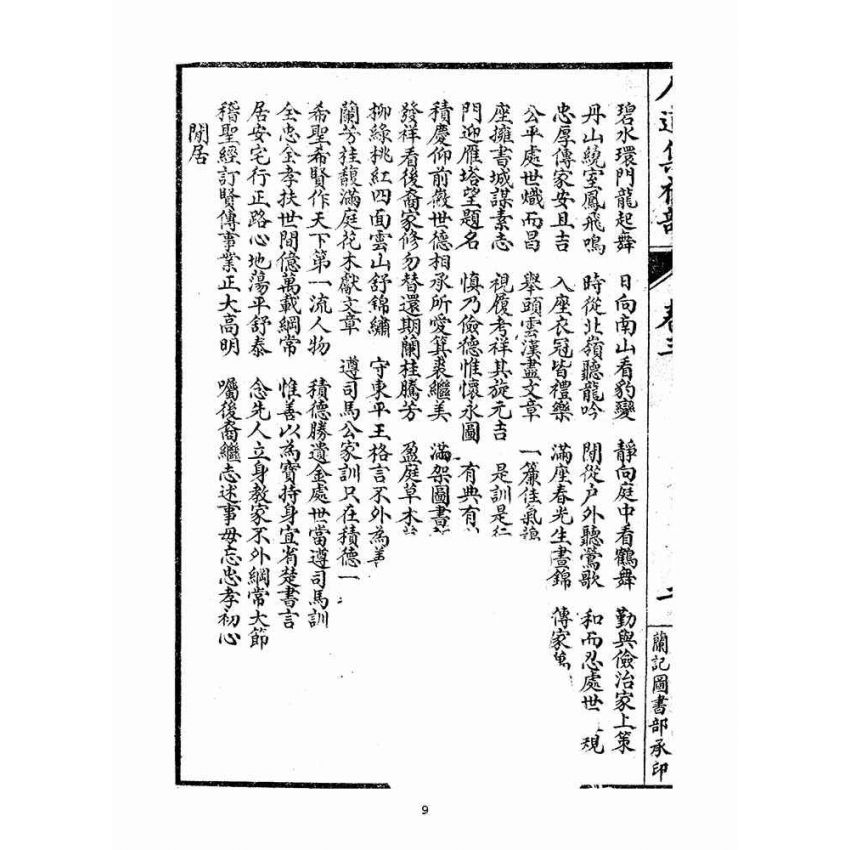 卷三 二 蘭記圖書部承印
碧水環門龍起舞 日向南山看豹變 靜向庭中看鶴舞 勤與儉治家上策
丹山繞室鳳飛鳴 時從北嶺聽龍吟 閒從户外聽鶯歌 和而忍處世 規
忠厚傳家安且吉 入座衣冠皆禮樂 滿座春光生晝錦 傳家萬
公平處世熾而昌 舉頭雲漢盡文章 一簾佳氣
座擁書城謀素志 視履考祥其旋元吉 是訓是
門迎雁塔望題名 慎乃儉德惟懷永圖 有典有
積慶仰前徽世德相承所愛箕裘繼美 滿架圖書
發祥看後裔家修勿替還期蘭桂騰芳 盈庭草木
柳綠桃紅四面雲山舒錦繡 守東平王格言不外為
蘭芳桂馥滿庭花木獻文章 遵司馬公家訓只在積德一
希聖希賢作天下第一流人物 積德勝遺金處世當遵司馬訓
全忠全孝扶世間億萬載綱常 惟善以為寶持身宜省楚書言
居安宅行正路心地蕩平舒泰 念先人立身教家不外綱常大節
稽聖經訂賢傳事業正大高明 囑後裔繼志述事毋忘忠孝初心
閒居
9